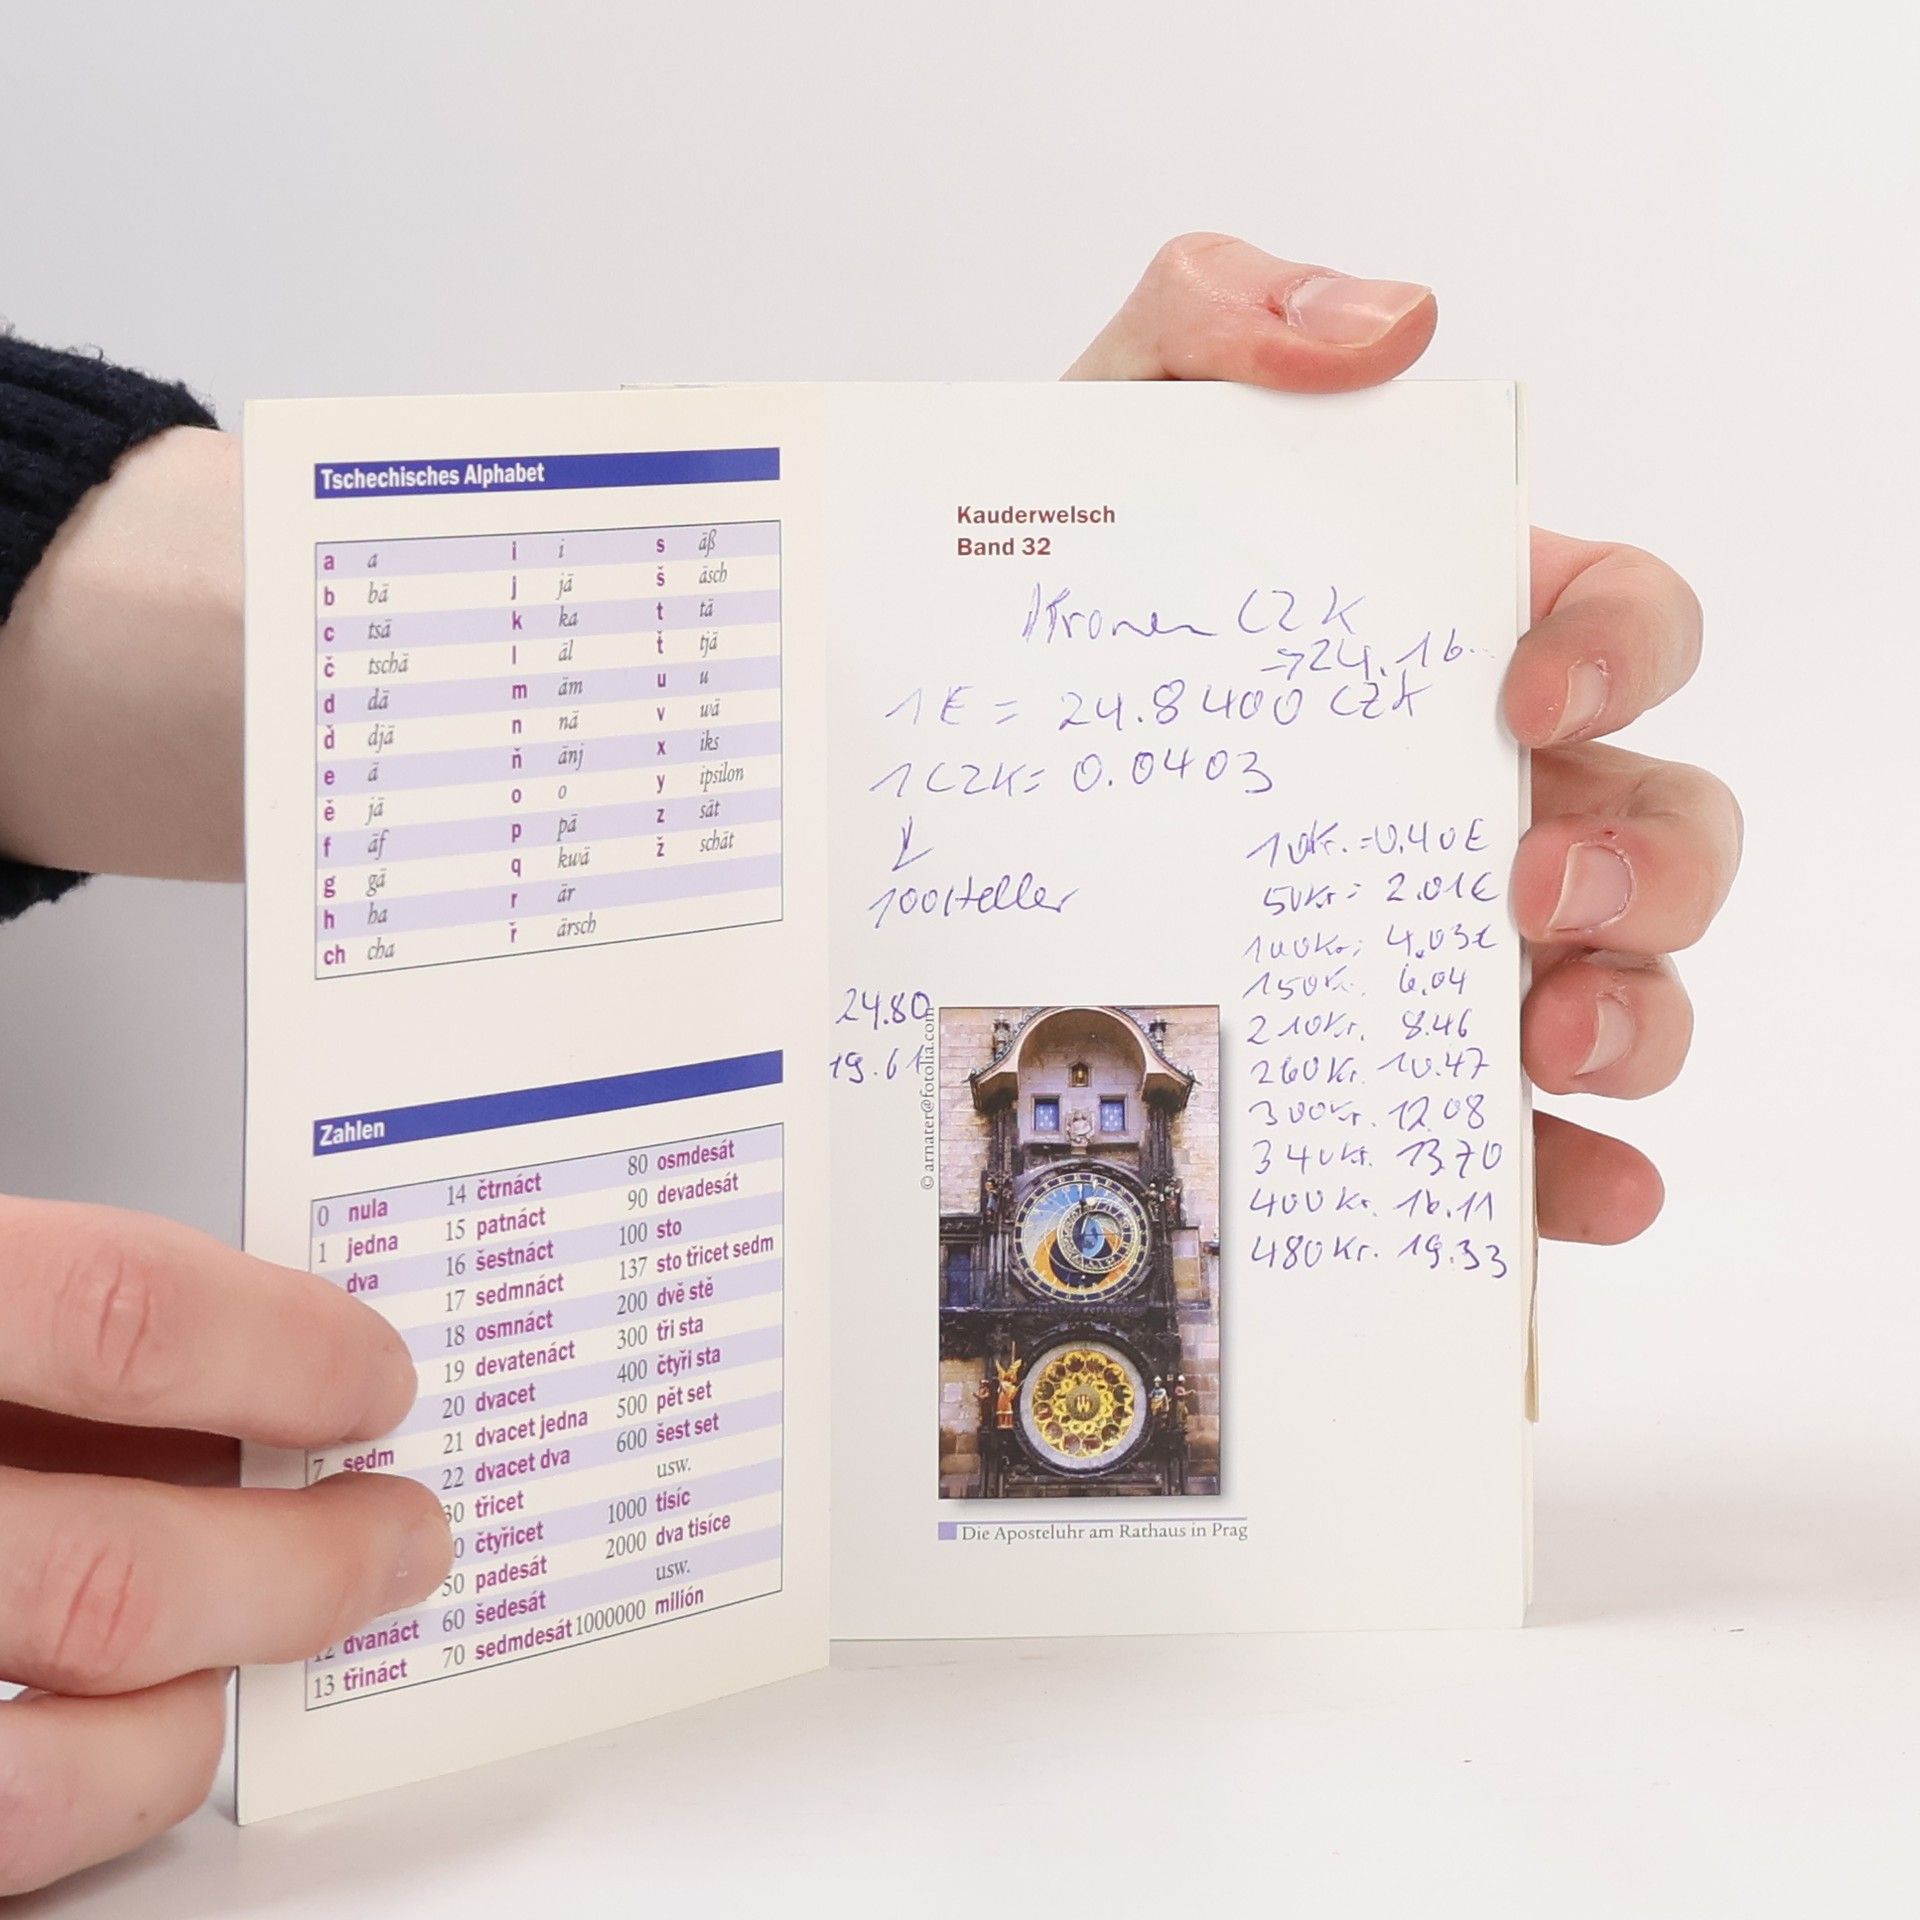 Tschechisches Alphabet
a a i i s äß
b bä j jä š äsch
c tsä k ka t tä
č tschä l äl ť tjä
d dä m äm u u
ď djä n nä v wä
e ä ň änj x iks
ě jä o o y ipsilon
f äf p pä z sät
g gä q kwä ž schät
h ha r är
ch cha ř ärsch
Zahlen
0 nula 14 čtrnáct 80 osmdesát
1 jedna 15 patnáct 90 devadesát
dva 16 šestnáct 100 sto
17 sedmnáct 137 sto třicet sedm
18 osmnáct 200 dvě stě
19 devatenáct 300 tři sta
20 dvacet 400 čtyři sta
7 sedm 21 dvacet jedna 500 pět set
22 dvacet dva 600 šest set
30 třicet usw.
0 čtyřicet 1000 tisíc
50 padesát 2000 dva tisíce
12 dvanáct 60 šedesát usw.
13 třináct 70 sedmdesát 1000000 milión
Kauderwelsch
Band 32
Kronen CZK
→24.16..
1 E = 24.8400 CZK
1 CZK = 0.0403
↓
100 Heller
10Kr. = 0.40E
50Kr = 2.01€
100Kr. 4.03€
150Kr. 6.04
210Kr. 8.46
260Kr. 10.47
300Kr. 12.08
340Kr. 13.70
400Kr. 16.11
480Kr. 19.33
24.80
19.61
© arnater@fotolia.com
Die Aposteluhr am Rathaus in Prag